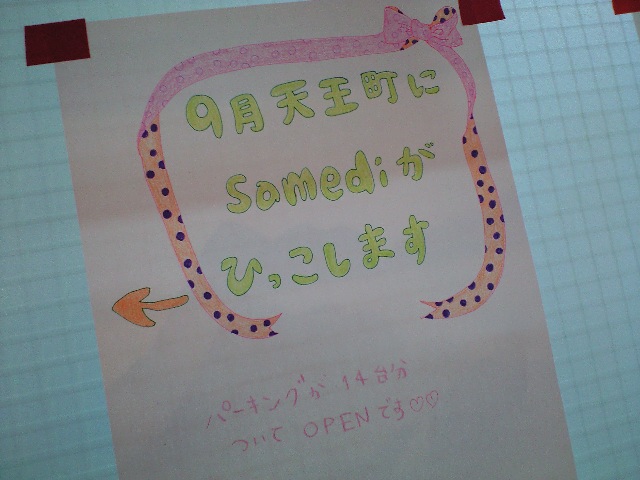 9月天王町に
Somediが
ひっこします
パーキングが 14台分
ついて OPENです♡♡